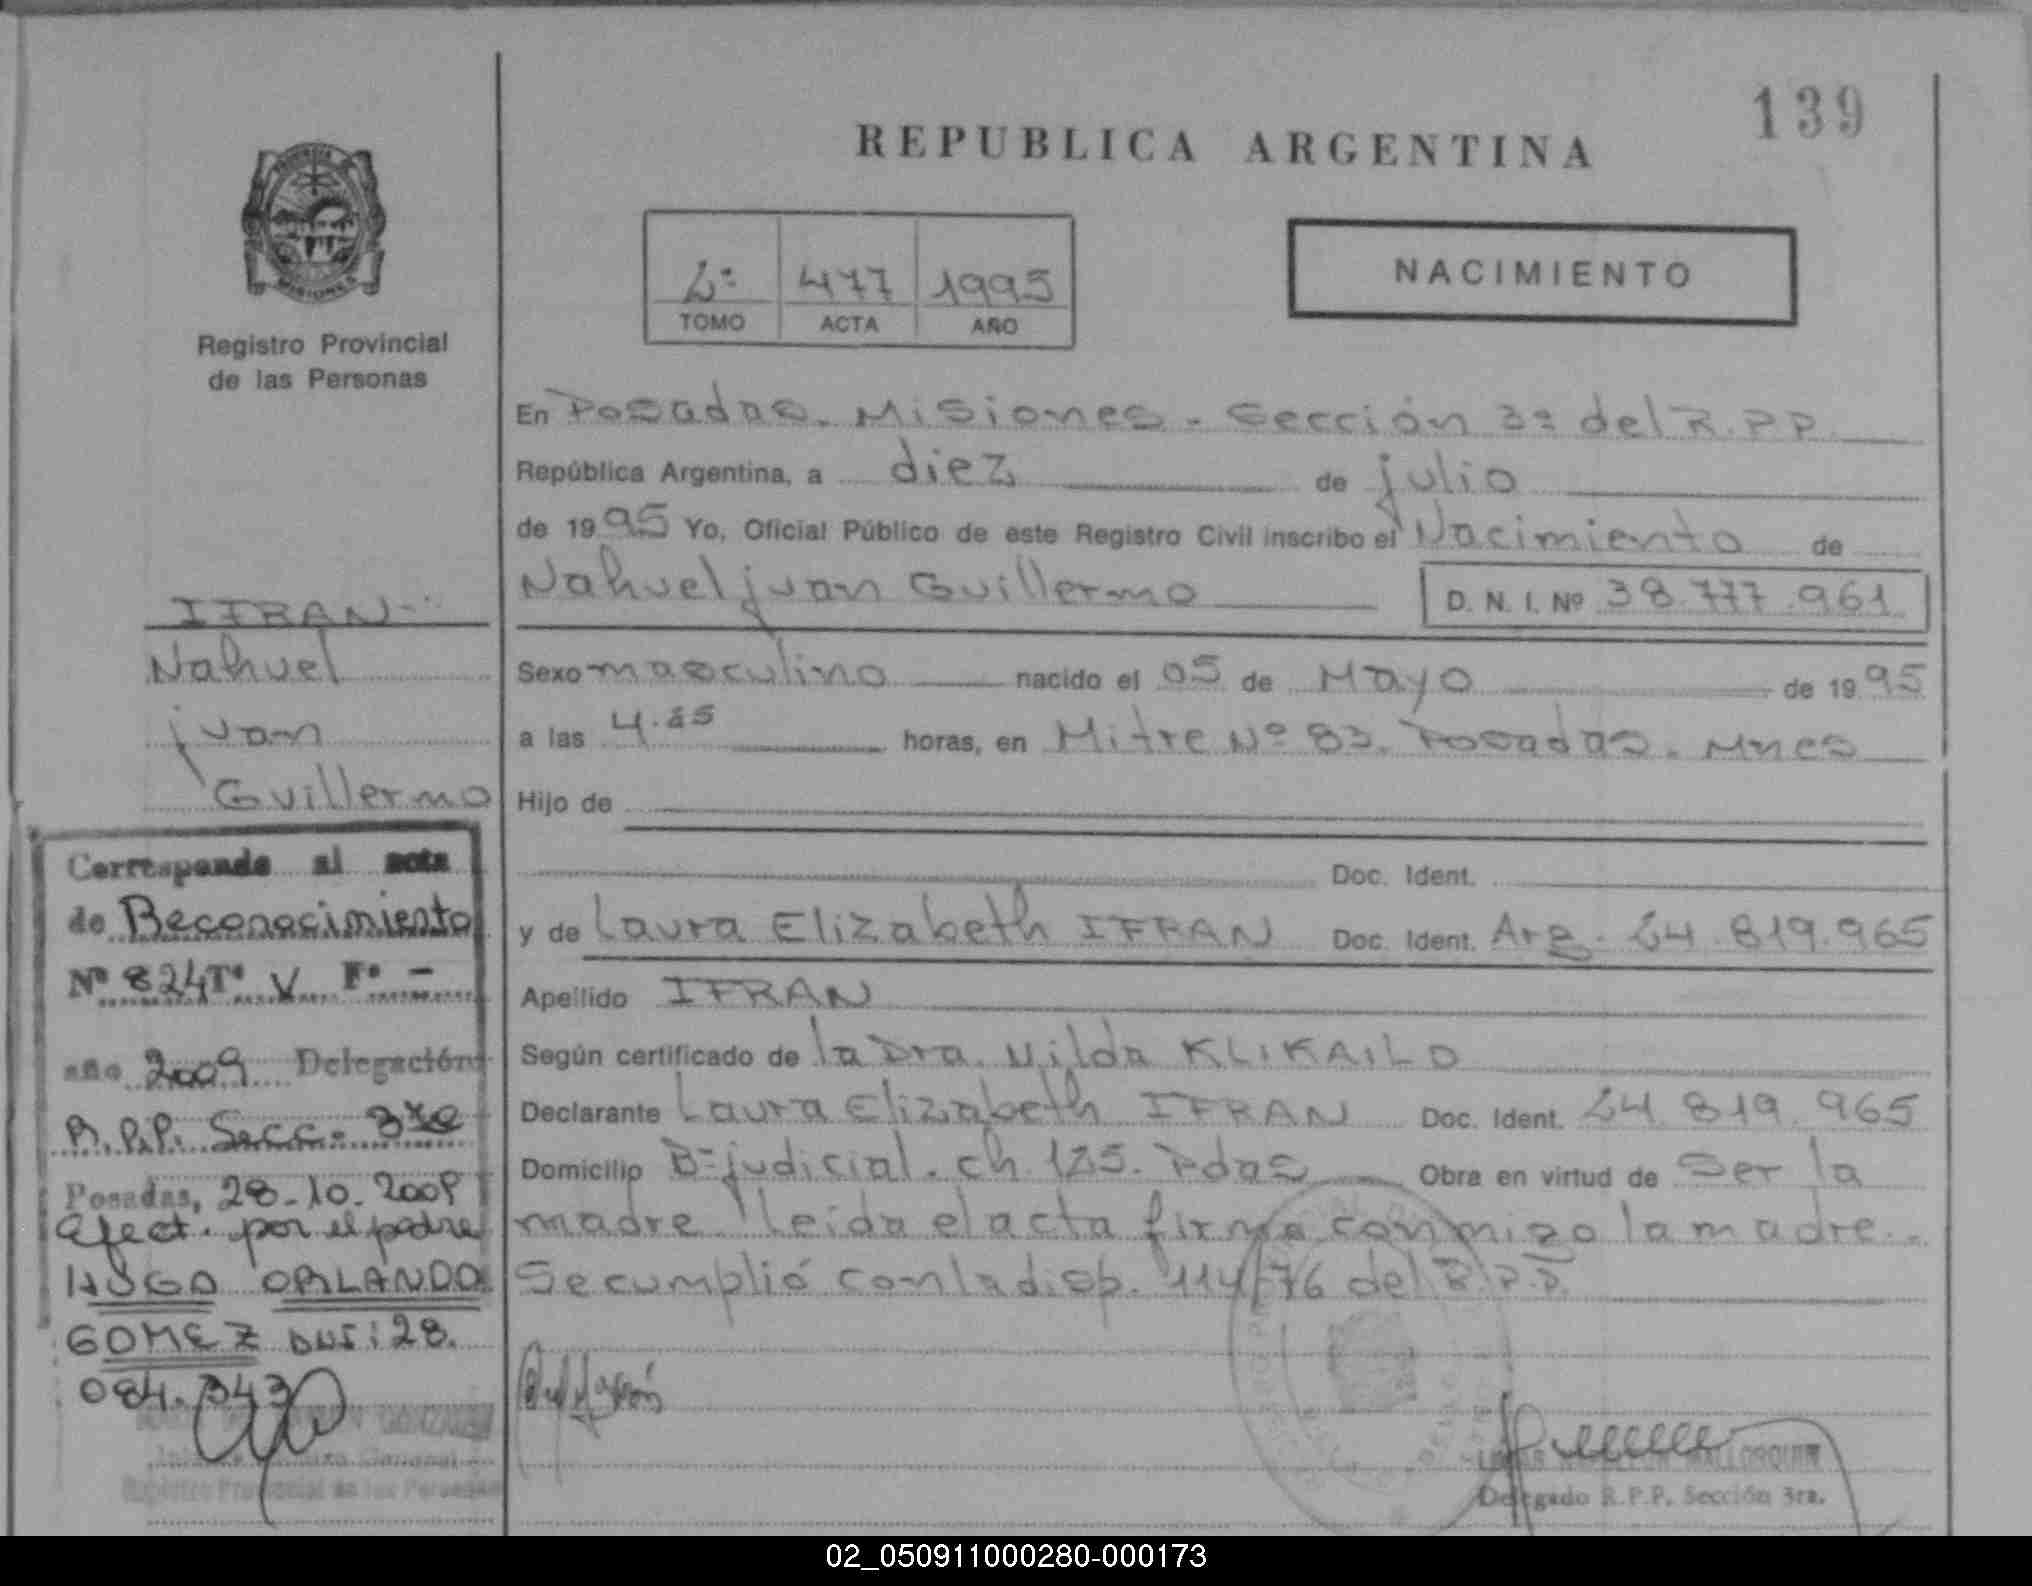 139
REPUBLICA ARGENTINA
MISIONES
Registro Provincial
de las Personas
2º 477 1995
TOMO ACTA AÑO
NACIMIENTO
En Posadas. Misiones. Sección 3ª del R.P.P.
República Argentina, a diez de julio
de 1995 Yo, Oficial Público de este Registro Civil inscribo el Nacimiento de
Nahuel juan Guillermo D. N. I. Nº 38.777.961
Sexo masculino nacido el 05 de Mayo de 1995
a las 4.25 horas, en Mitre Nº 83. Posadas. Mnes
Hijo de
Doc. Ident.
y de Laura Elizabeth IFRAN Doc. Ident. Arg. 24.819.965
Apellido IFRAN
Según certificado de la Dra. Nilda KLIKAILO
Declarante Laura Elizabeth IFRAN Doc. Ident. 24.819.965
Domicilio Bº judicial. ch. 125. Pdas Obra en virtud de Ser la
madre. Leida el acta firma conmigo la madre..
Se cumplió con la disp. 114/76 del R.P.P.
MALLORQUIN
Delegado R.P.P. Sección 3ra.
IFRAN
Nahuel
juan
Guillermo
Corresponde al acta
de Reconocimiento
Nº 824 Tº V Fº -
año 2009 Delegación
R.P.P. Secc. 3ra
Posadas, 28-10-2009
Efect. por el padre
HUGO ORLANDO
GOMEZ DNI: 28.
084.343
GONZALEZ
General
Registro Provincial de las Personas
02_050911000280-000173